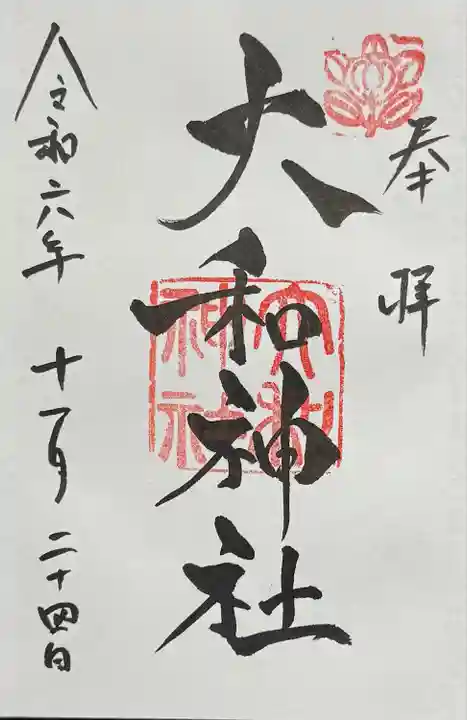 奉拝
大和神社
大和
神社
令和六年 十一月 二十四日